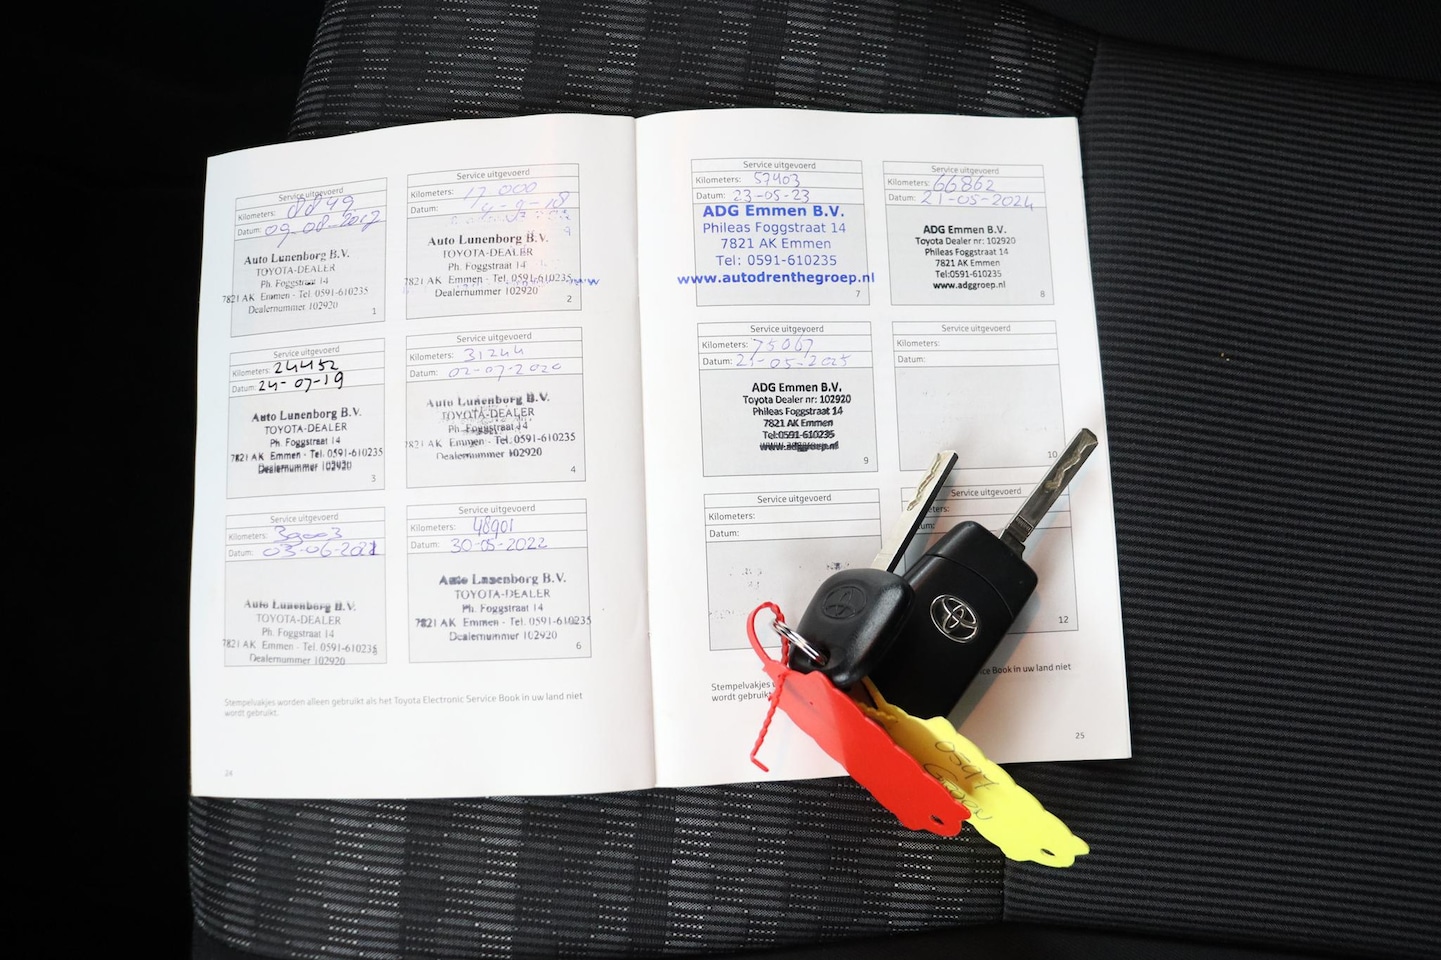 Service uitgevoerd
Kilometers: 8849
Datum: 09-08-2017
Auto Lunenborg B.V.
TOYOTA-DEALER
Ph. Foggstraat 14
7821 AK Emmen - Tel. 0591-610235
Dealernummer 102920
1
Service uitgevoerd
Kilometers: 17000
Datum: 4-9-18
Auto Lunenborg B.V.
TOYOTA-DEALER
Ph. Foggstraat 14
7821 AK Emmen - Tel. 0591-610235
Dealernummer 102920
2
Service uitgevoerd
Kilometers: 24452
Datum: 24-07-19
Auto Lunenborg B.V.
TOYOTA-DEALER
Ph. Foggstraat 14
7821 AK Emmen - Tel. 0591-610235
Dealernummer 102920
3
Service uitgevoerd
Kilometers: 31244
Datum: 02-07-2020
Auto Lunenborg B.V.
TOYOTA-DEALER
Ph. Foggstraat 14
7821 AK Emmen - Tel. 0591-610235
Dealernummer 102920
4
Service uitgevoerd
Kilometers: 39003
Datum: 03-06-2021
Auto Lunenborg B.V.
TOYOTA-DEALER
Ph. Foggstraat 14
7821 AK Emmen - Tel. 0591-610235
Dealernummer 102920
Service uitgevoerd
Kilometers: 48901
Datum: 30-05-2022
Auto Lunenborg B.V.
TOYOTA-DEALER
Ph. Foggstraat 14
7821 AK Emmen - Tel. 0591-610235
Dealernummer 102920
6
Stempelvakjes worden alleen gebruikt als het Toyota Electronic Service Book in uw land niet
wordt gebruikt.
24
Service uitgevoerd
Kilometers: 57403
Datum: 23-05-23
ADG Emmen B.V.
Phileas Foggstraat 14
7821 AK Emmen
Tel: 0591-610235
www.autodrenthegroep.nl
7
Service uitgevoerd
Kilometers: 66862
Datum: 21-05-2024
ADG Emmen B.V.
Toyota Dealer nr: 102920
Phileas Foggstraat 14
7821 AK Emmen
Tel:0591-610235
www.adggroep.nl
8
Service uitgevoerd
Kilometers: 75067
Datum: 21-05-2025
ADG Emmen B.V.
Toyota Dealer nr: 102920
Phileas Foggstraat 14
7821 AK Emmen
Tel:0591-610235
www.adggroep.nl
9
Service uitgevoerd
Kilometers:
Datum:
10
Service uitgevoerd
Kilometers:
Datum:
Service uitgevoerd
12
Service Book in uw land niet
wordt
25
0597